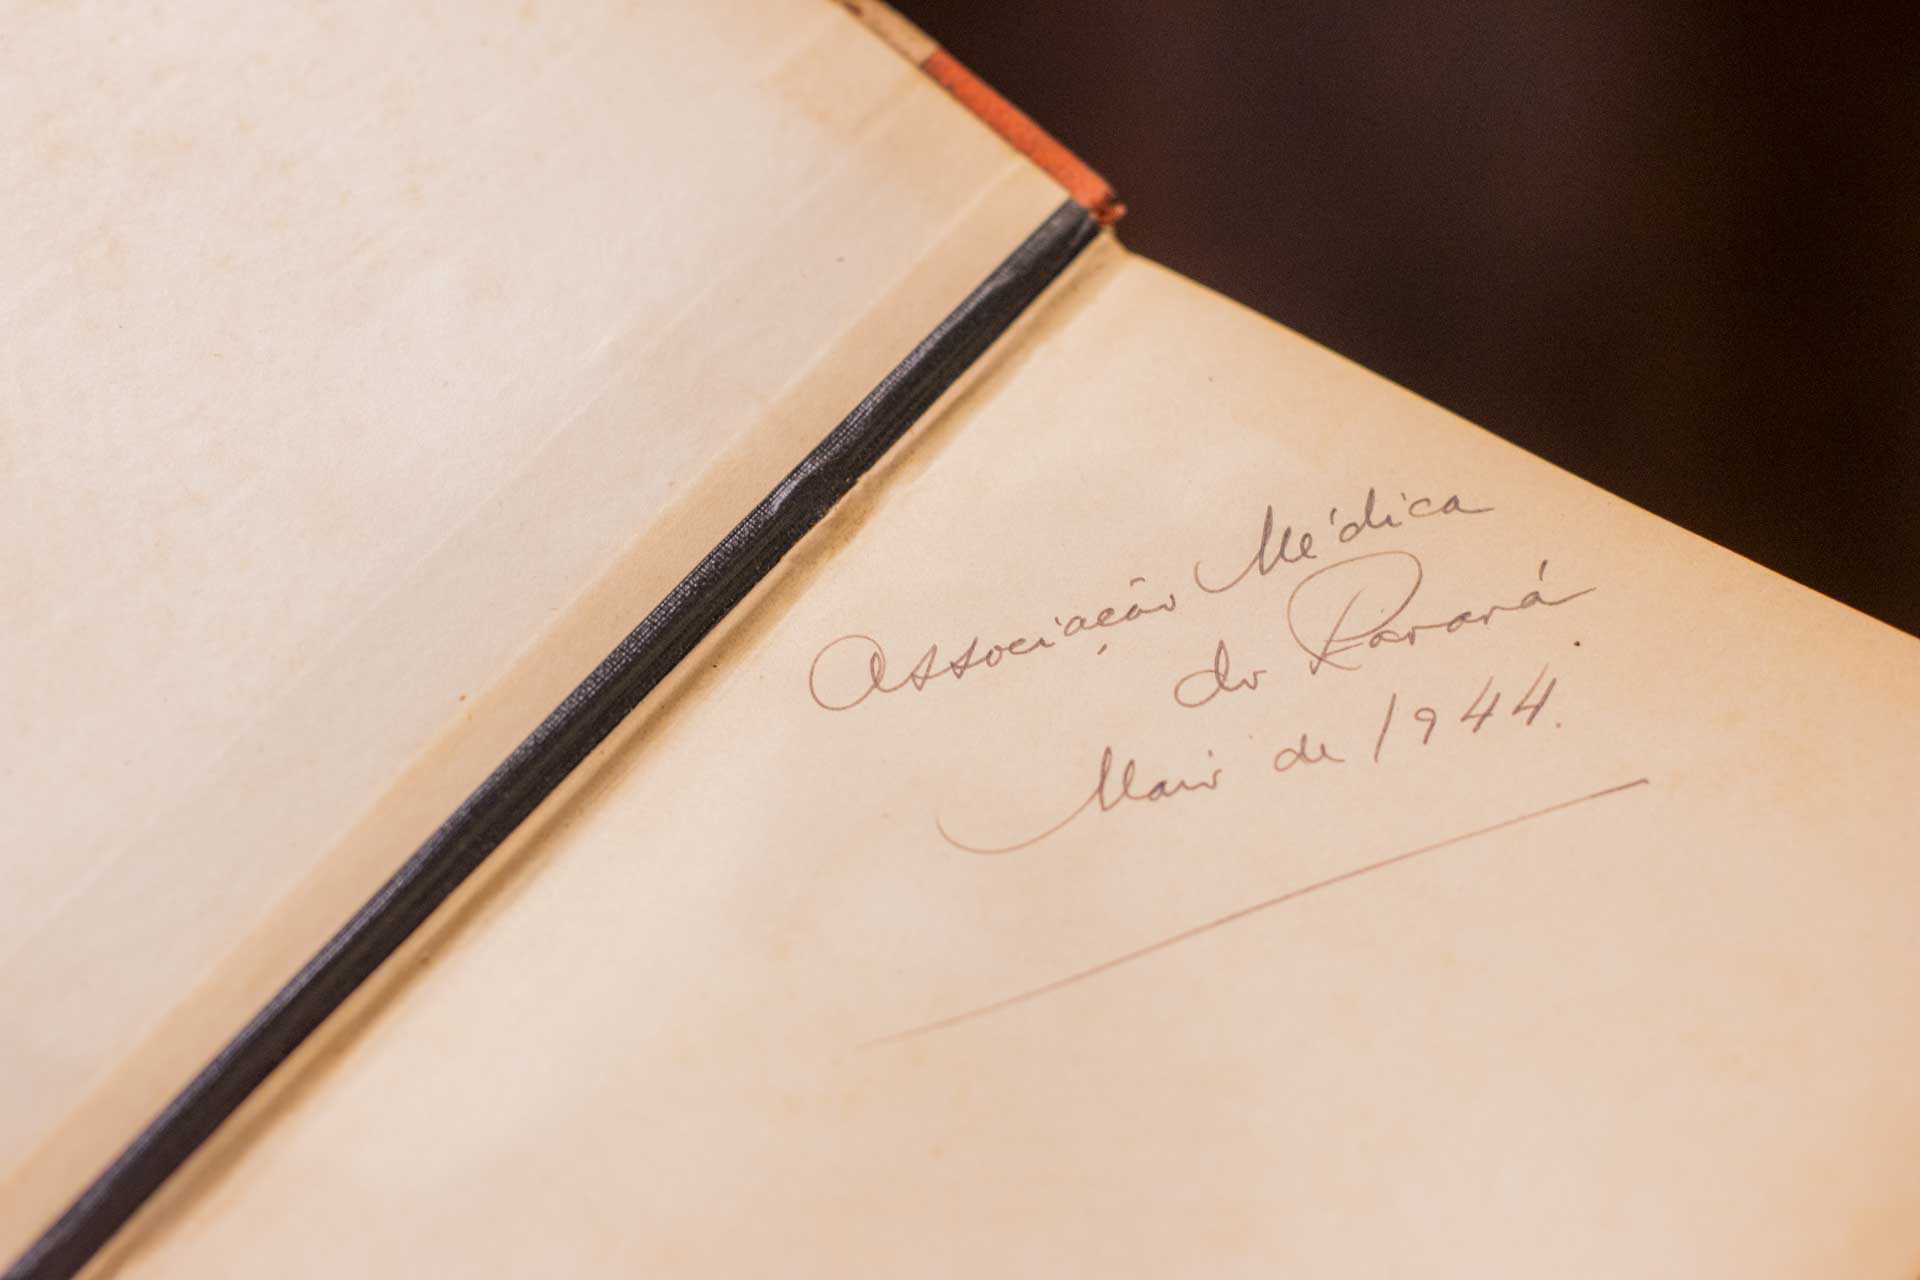 Associação Médica
do Paraná.
Maio de 1944.